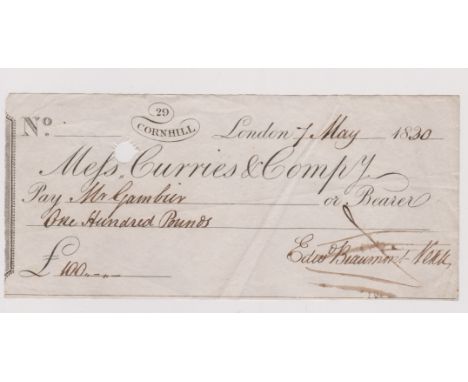 No.
29
CORNHILL
London 7 May 1830
Mess. Curries & Compy
Pay Mr Gambier or Bearer
One Hundred Pounds
£ 100
Edwd Beaumont